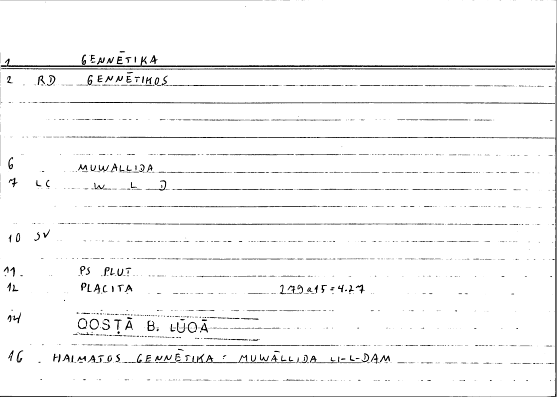 1 GENNĒTIKA
2 RD GENNĒTIKOS
6 MUWALLIDA
7 LC W L D
10 SV
11 PS PLUT
12 PLACITA 279a15=4.27
14 QOSṬĀ B. LŪQĀ
16 HAIMATOS GENNĒTIKA : MUWALLIDA LI-L-DAM